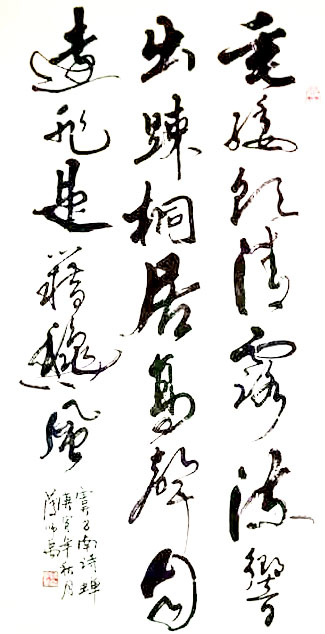 垂緌飲清露流響
出踈桐居高聲自
遠非是藉穐風
虞世南诗蝉
庚寅年秋月